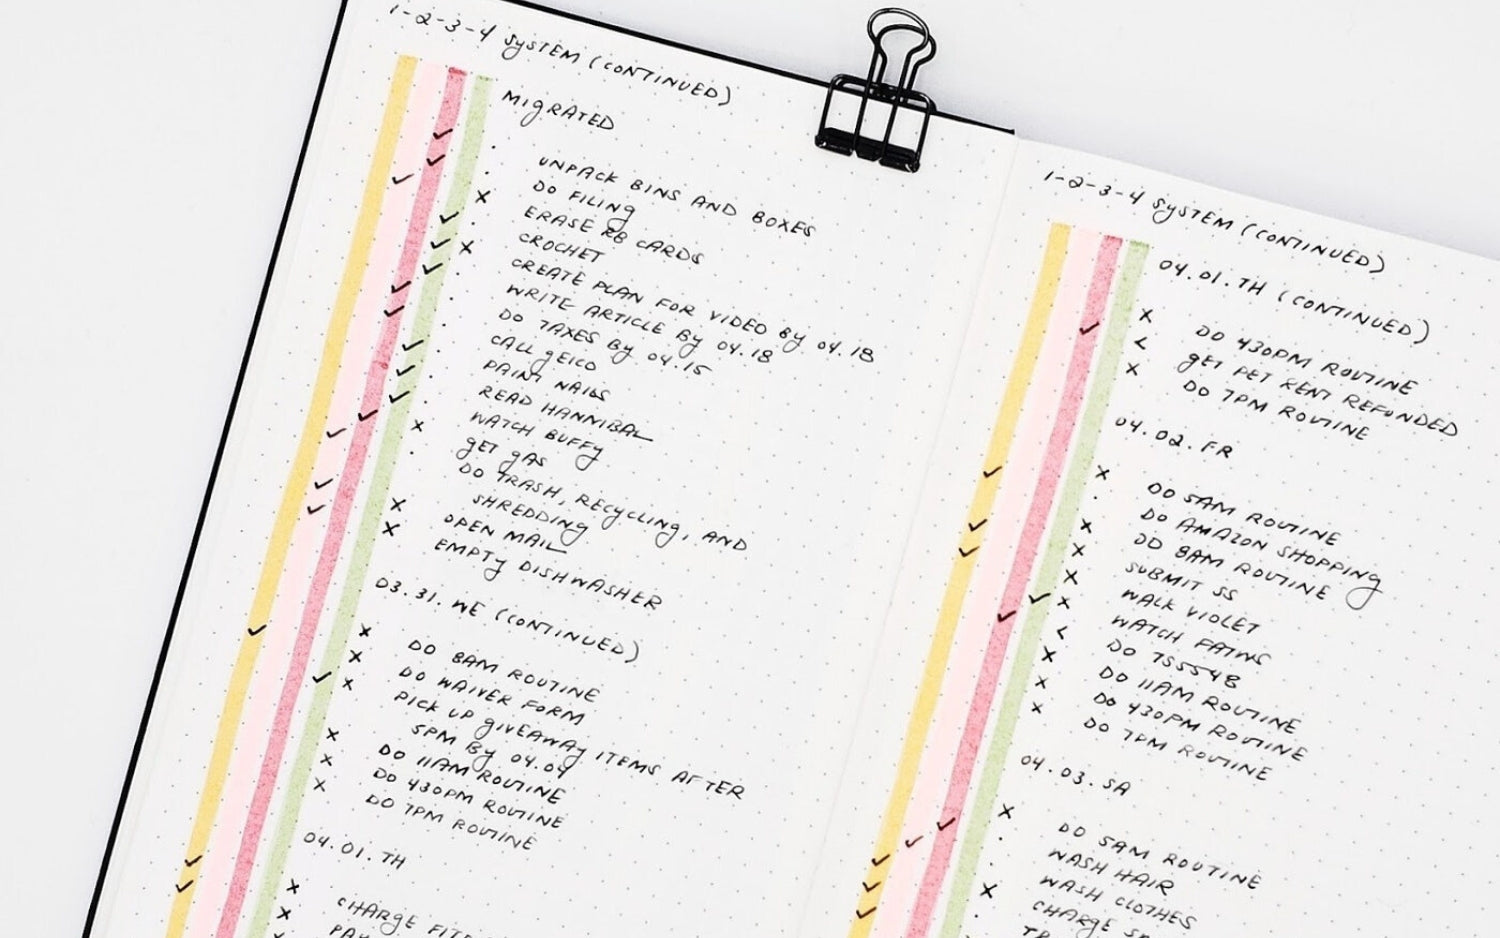 1-2-3-4 SYSTEM (CONTINUED)
MIGRATED
UNPACK BINS AND BOXES
DO FILING
ERASE RB CARDS
CROCHET
CREATE PLAN FOR VIDEO BY 04.18
WRITE ARTICLE BY 04.18
DO TAXES BY 04.15
CALL GEICO
PAINT NAILS
READ HANNIBAL
WATCH BUFFY
GET GAS
DO TRASH, RECYCLING, AND
SHREDDING
OPEN MAIL
EMPTY DISHWASHER
03.31.WE (CONTINUED)
DO 8AM ROUTINE
DO WAIVER FORM
PICK UP GIVEAWAY ITEMS AFTER
5PM BY 04.04
DO 11AM ROUTINE
DO 430PM ROUTINE
DO 7PM ROUTINE
04.01.TH
CHARGE
1-2-3-4 SYSTEM (CONTINUED)
04.01.TH (CONTINUED)
DO 430PM ROUTINE
GET PET RENT REFUNDED
DO 7PM ROUTINE
04.02.FR
DO 5AM ROUTINE
DO AMAZON SHOPPING
DO 8AM ROUTINE
SUBMIT SS
WALK VIOLET
WATCH FATWS
DO 755548
DO 11AM ROUTINE
DO 430PM ROUTINE
DO 7PM ROUTINE
04.03.SA
DO 5AM ROUTINE
WASH HAIR
WASH CLOTHES
CHARGE